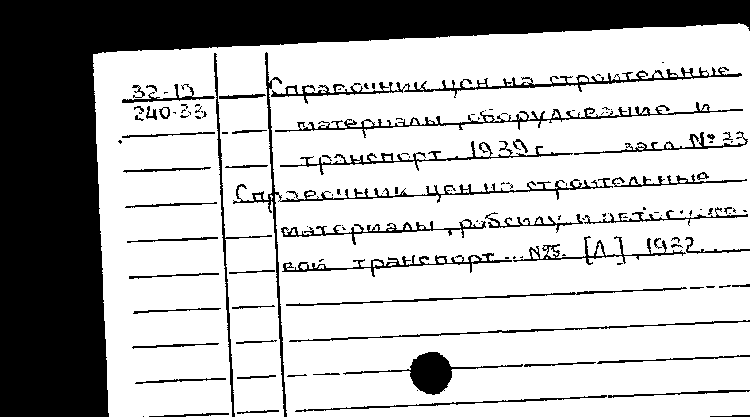 32-19 Справочник цен на строительные
240-33 материалы, оборудование и
транспорт. 1939 г. загл. № 33
Справочник цен на строительные
материалы, рабсилу и
вой транспорт... №25. [Л], 1932.